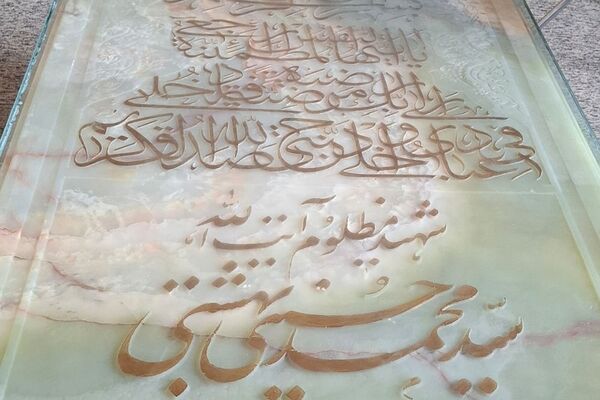 یا ایتها النفس المطمئنة ارجعی
الی ربک راضیة مرضیة فادخلی
فی عبادی وادخلی جنتی صدق الله
شهید مظلوم آیت الله
سید محمد حسینی بهشتی